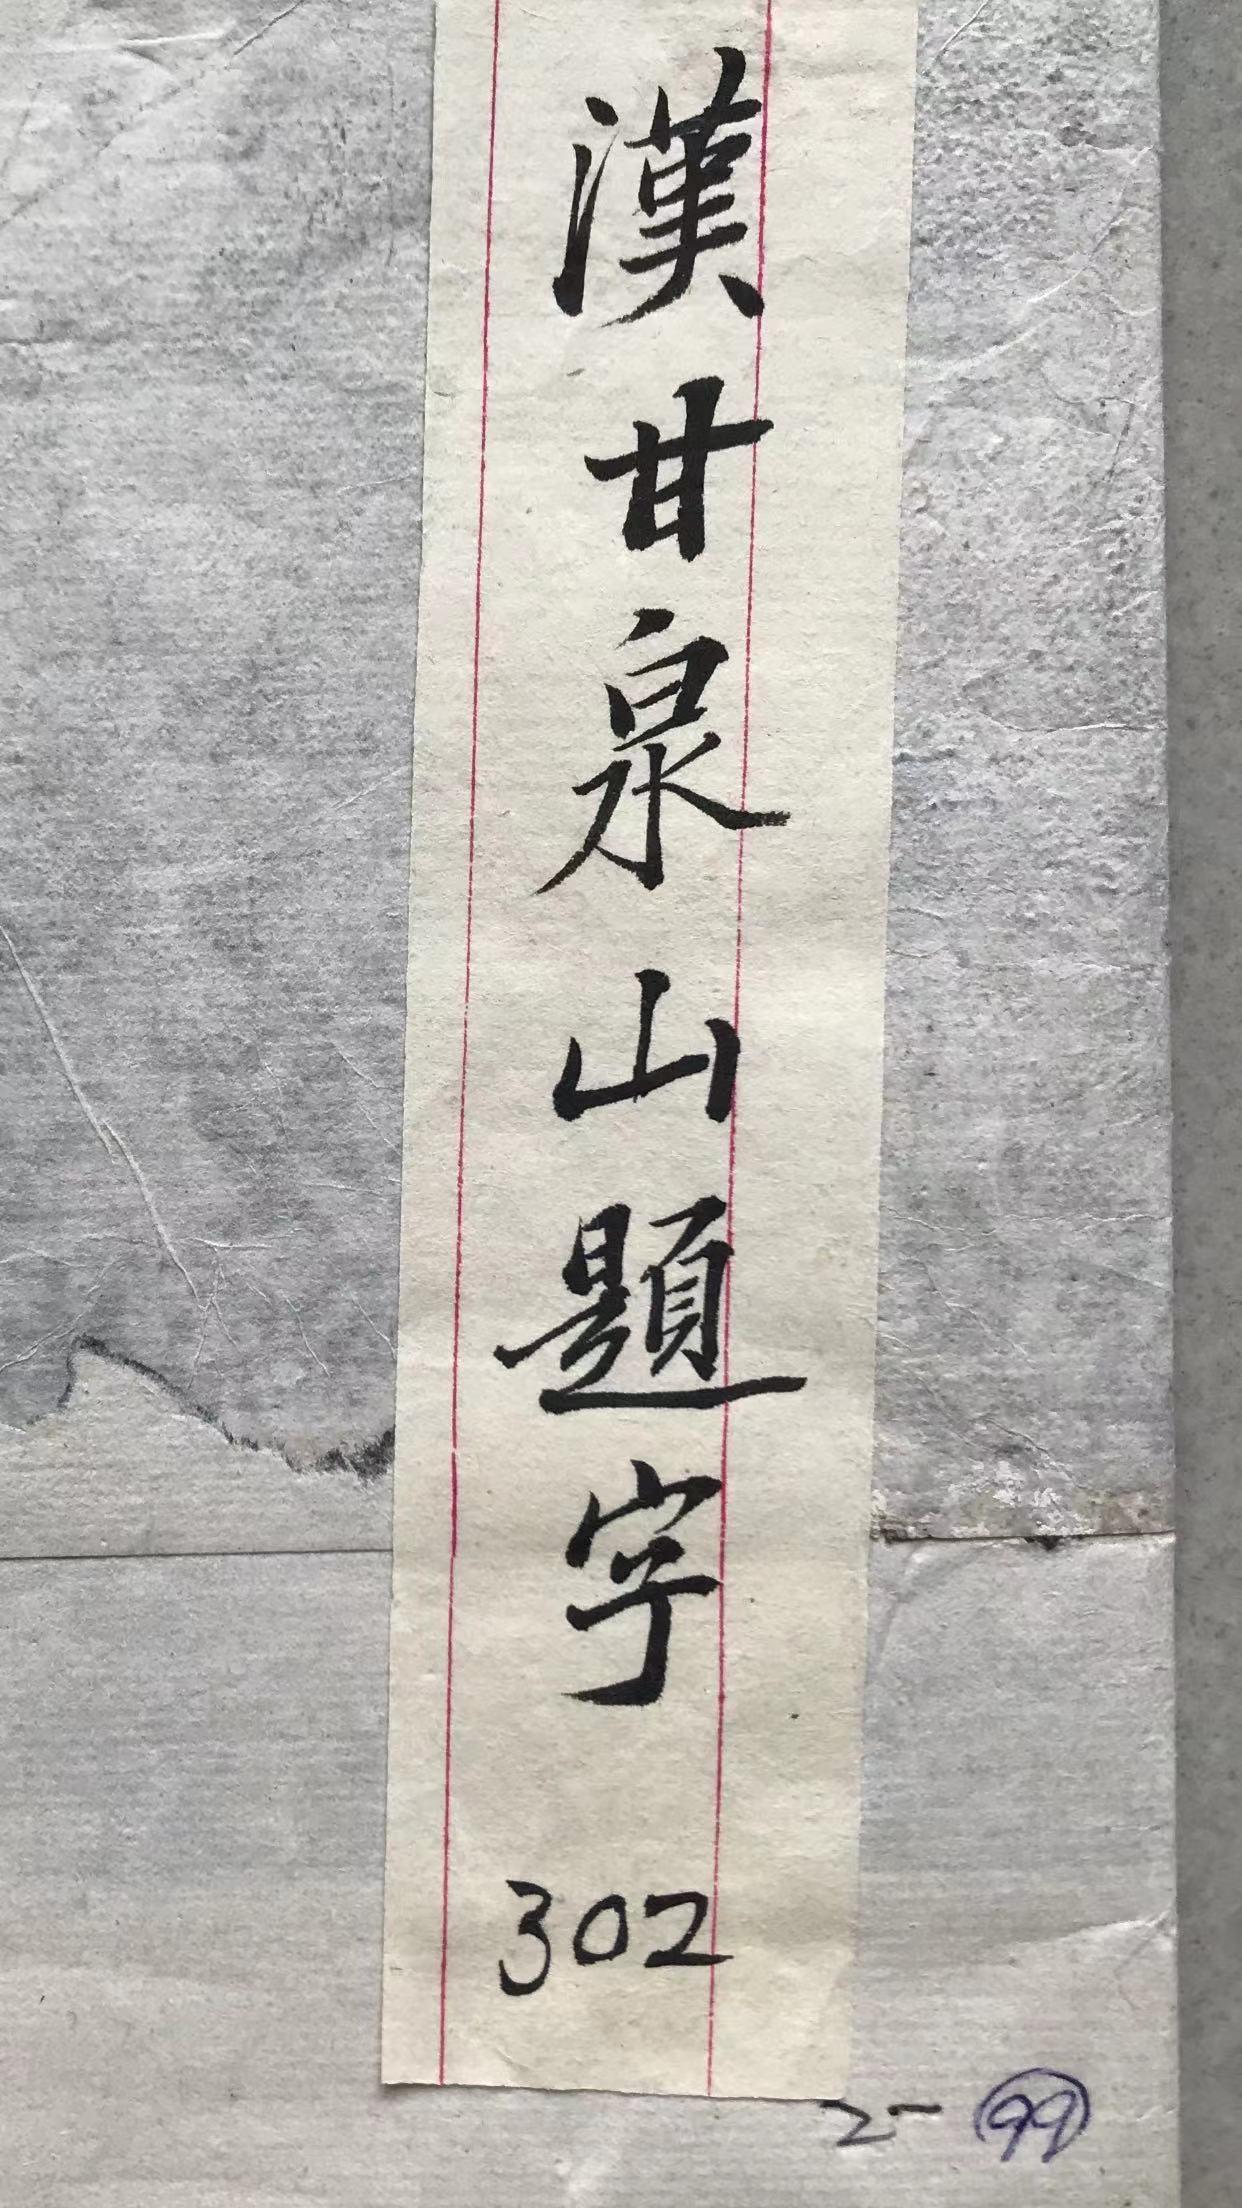 漢甘泉山題字
302
2- 99